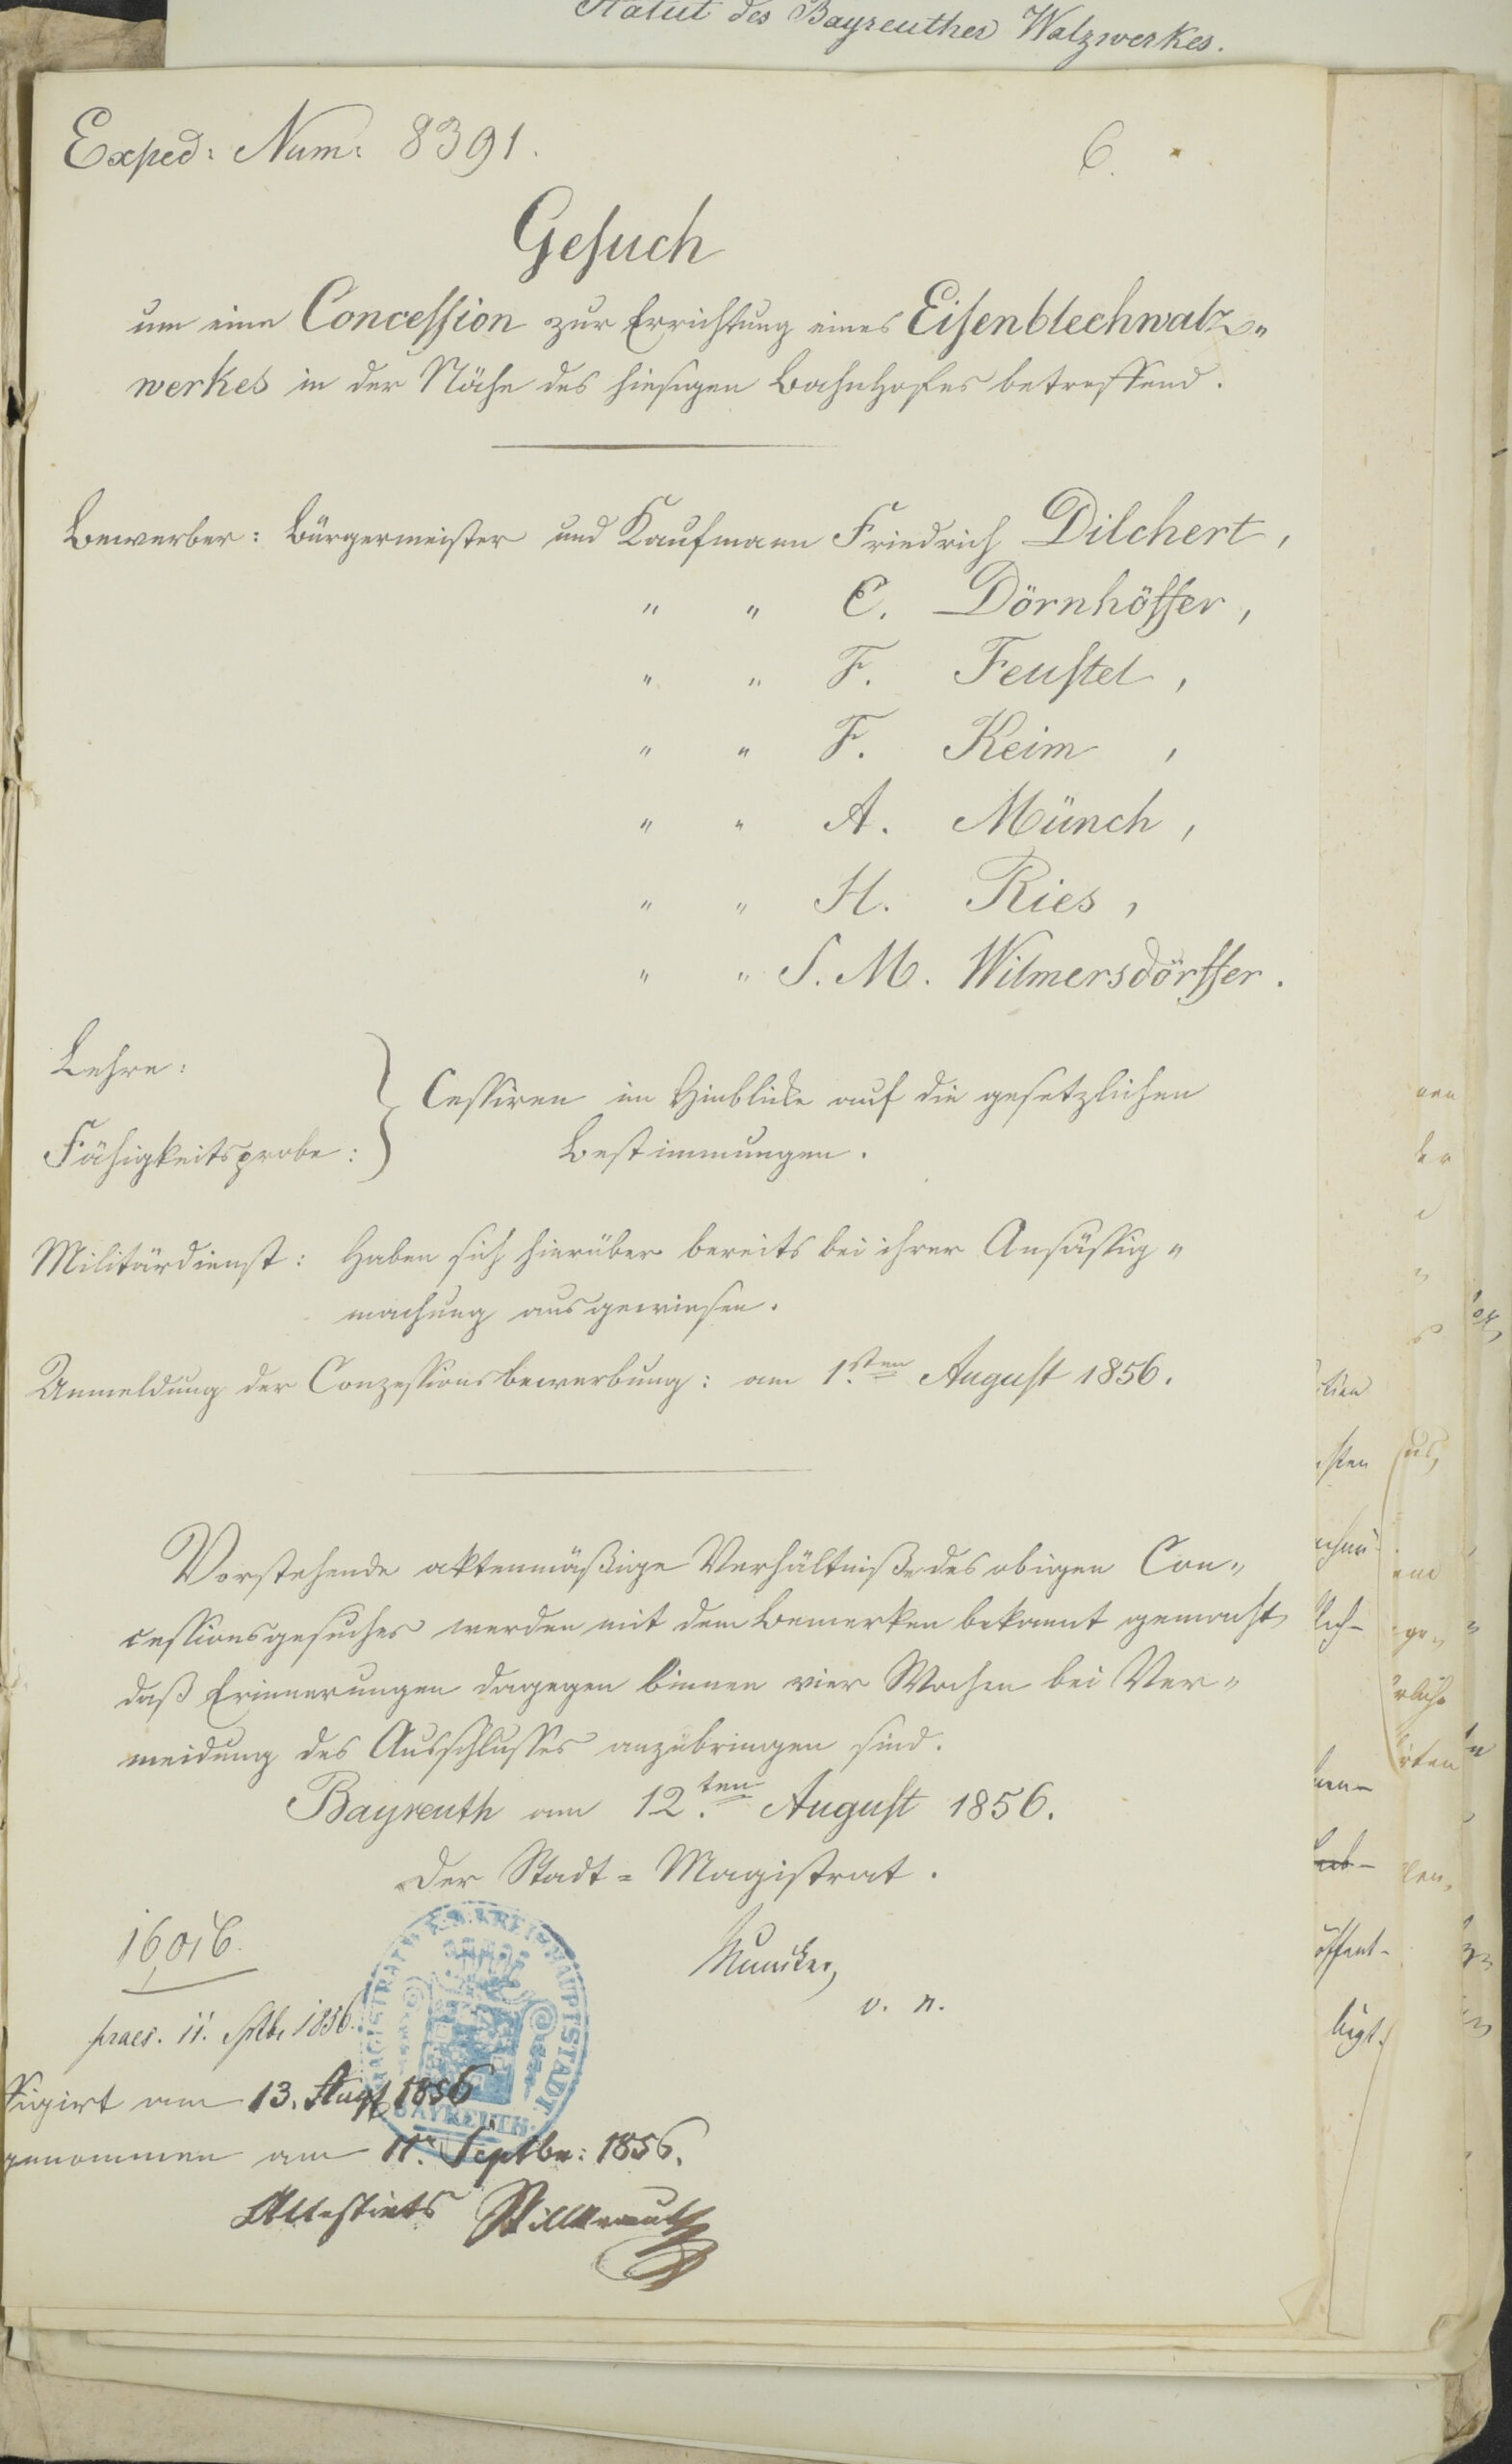 Statut des Bayreuther Walzwerkes.
Exped: Num: 8391.
6.
Gesuch
um eine Concession zur Errichtung eines Eisenblechwalz„
werkes in der Nähe des hiesigen Bahnhofes betreffend.
Bewerber: Bürgermeister und Kaufmann Friedrich Dilchert,
" " C. Dörnhöffer,
" " F. Feustel,
" " F. Keim,
" " A. Münch,
" " H. Ries,
" " S. M. Wilmersdörffer.
Lehre:
Cessiren im Hinblicke auf die gesetzlichen
Fähigkeitsprobe:
Bestimmungen.
Militärdienst: Haben sich hierüber bereits bei ihrer Ansässig„
machung ausgewiesen.
Anmeldung der Conzessionsbewerbung: am 1.sten August 1856.
Vorstehende aktenmäßige Verhältniße des obigen Con„
cessionsgesuches werden mit dem Bemerken bekannt gemacht
daß Erinnerungen dagegen binnen vier Wochen bei Ver„
meidung des Ausschlusses anzubringen sind.
Bayreuth am 12.ten August 1856.
Der Stadt=Magistrat.
16016.
Muncker,
v. n.
praes. 11. Sptb. 1856.
MAGISTRAT K. B. KREISHAUPTSTADT
BAYREUTH.
Figirt am 13. Augst 1856
genommen am 11. Septbr: 1856.
Attestirts
öffent-